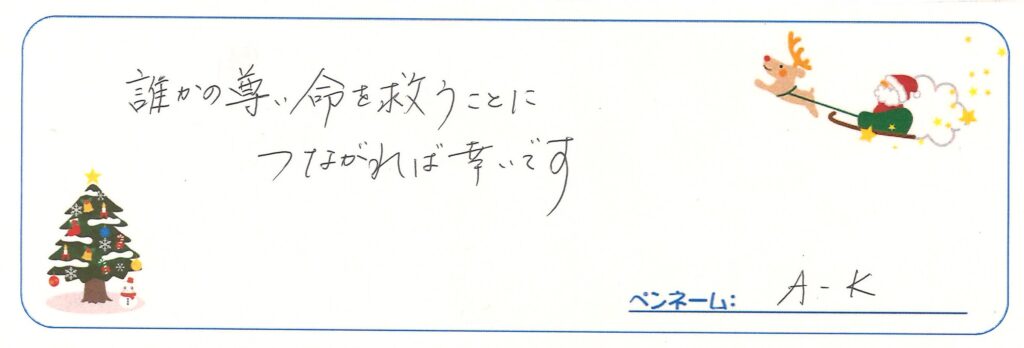 誰かの尊い命を救うことに
つながれば幸いです
ペンネーム: A-K